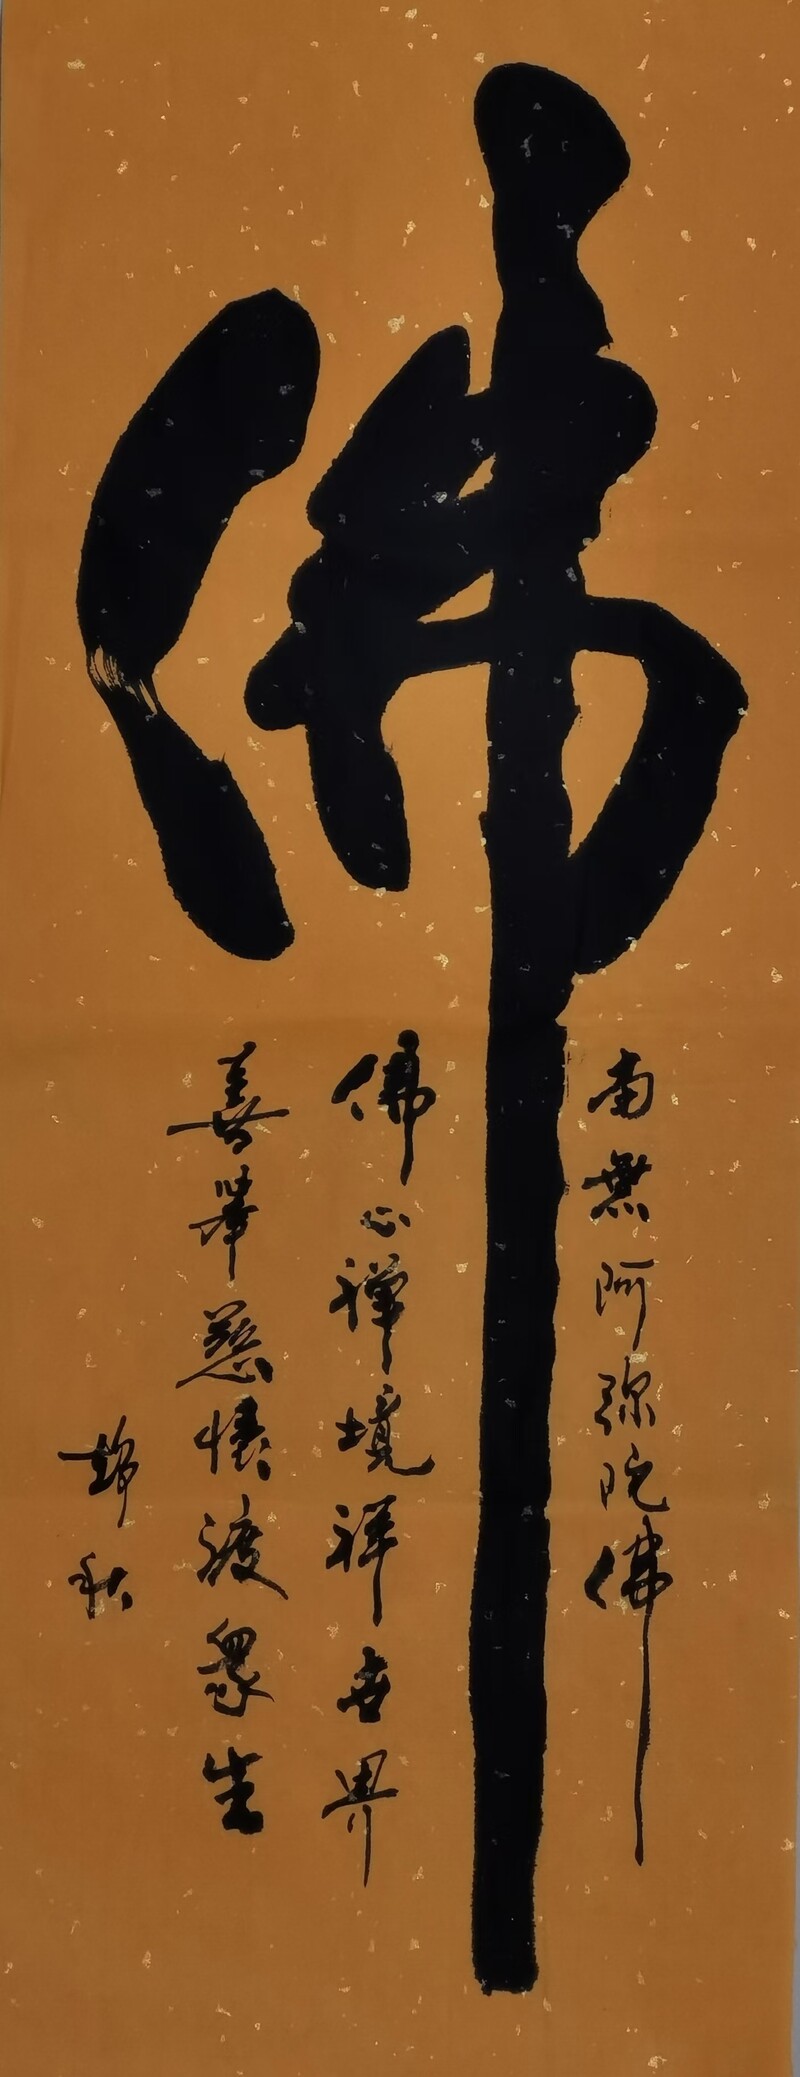 佛
南無阿弥陀佛
佛心禪境祥世界
善舉慈懷渡眾生
秋